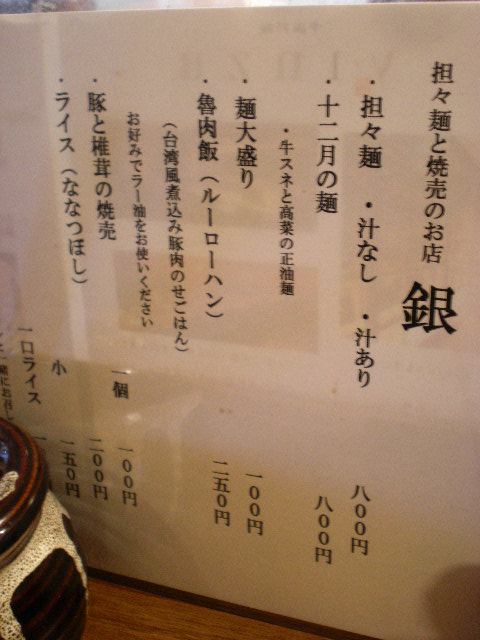 担々麺と焼売のお店 銀
・担々麺 ・汁なし ・汁あり 八〇〇円
・十二月の麺 八〇〇円
・牛スネと高菜の正油麺
・麺大盛り 一〇〇円
・魯肉飯（ルーローハン） 二五〇円
（台湾風煮込み豚肉のせごはん）
お好みでラー油をお使いください
・豚と椎茸の焼売 一個 一〇〇円
二〇〇円
・ライス（ななつぼし） 小 一五〇円
一口ライス